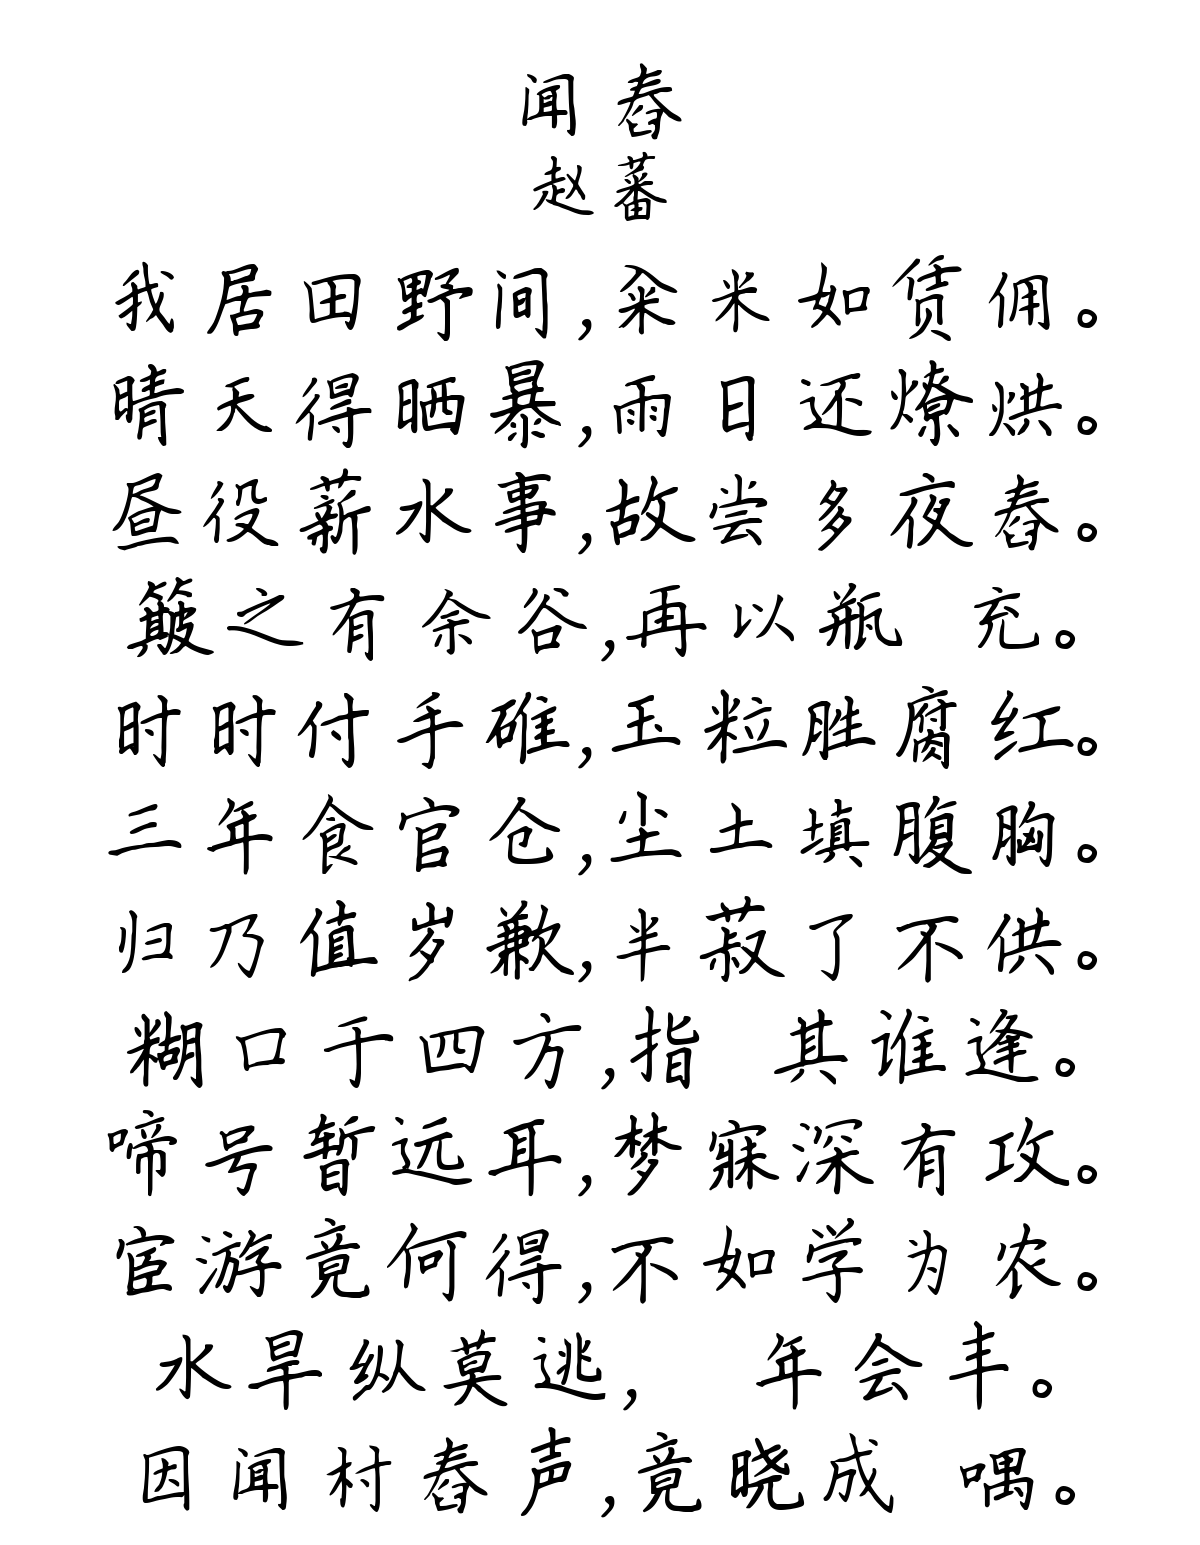 闻舂
赵蕃
我居田野间,籴米如赁佣。
晴天得晒暴,雨日还燎烘。
昼役薪水事,故尝多夜舂。
簸之有余谷,再以瓶 充。
时时付手碓,玉粒胜腐红。
三年食官仓,尘土填腹胸。
归乃值岁歉,半菽了不供。
糊口于四方,指 其谁逢。
啼号暂远耳,梦寐深有攻。
宦游竟何得,不如学为农。
水旱纵莫逃, 年会丰。
因闻村舂声,竟晓成 喁。